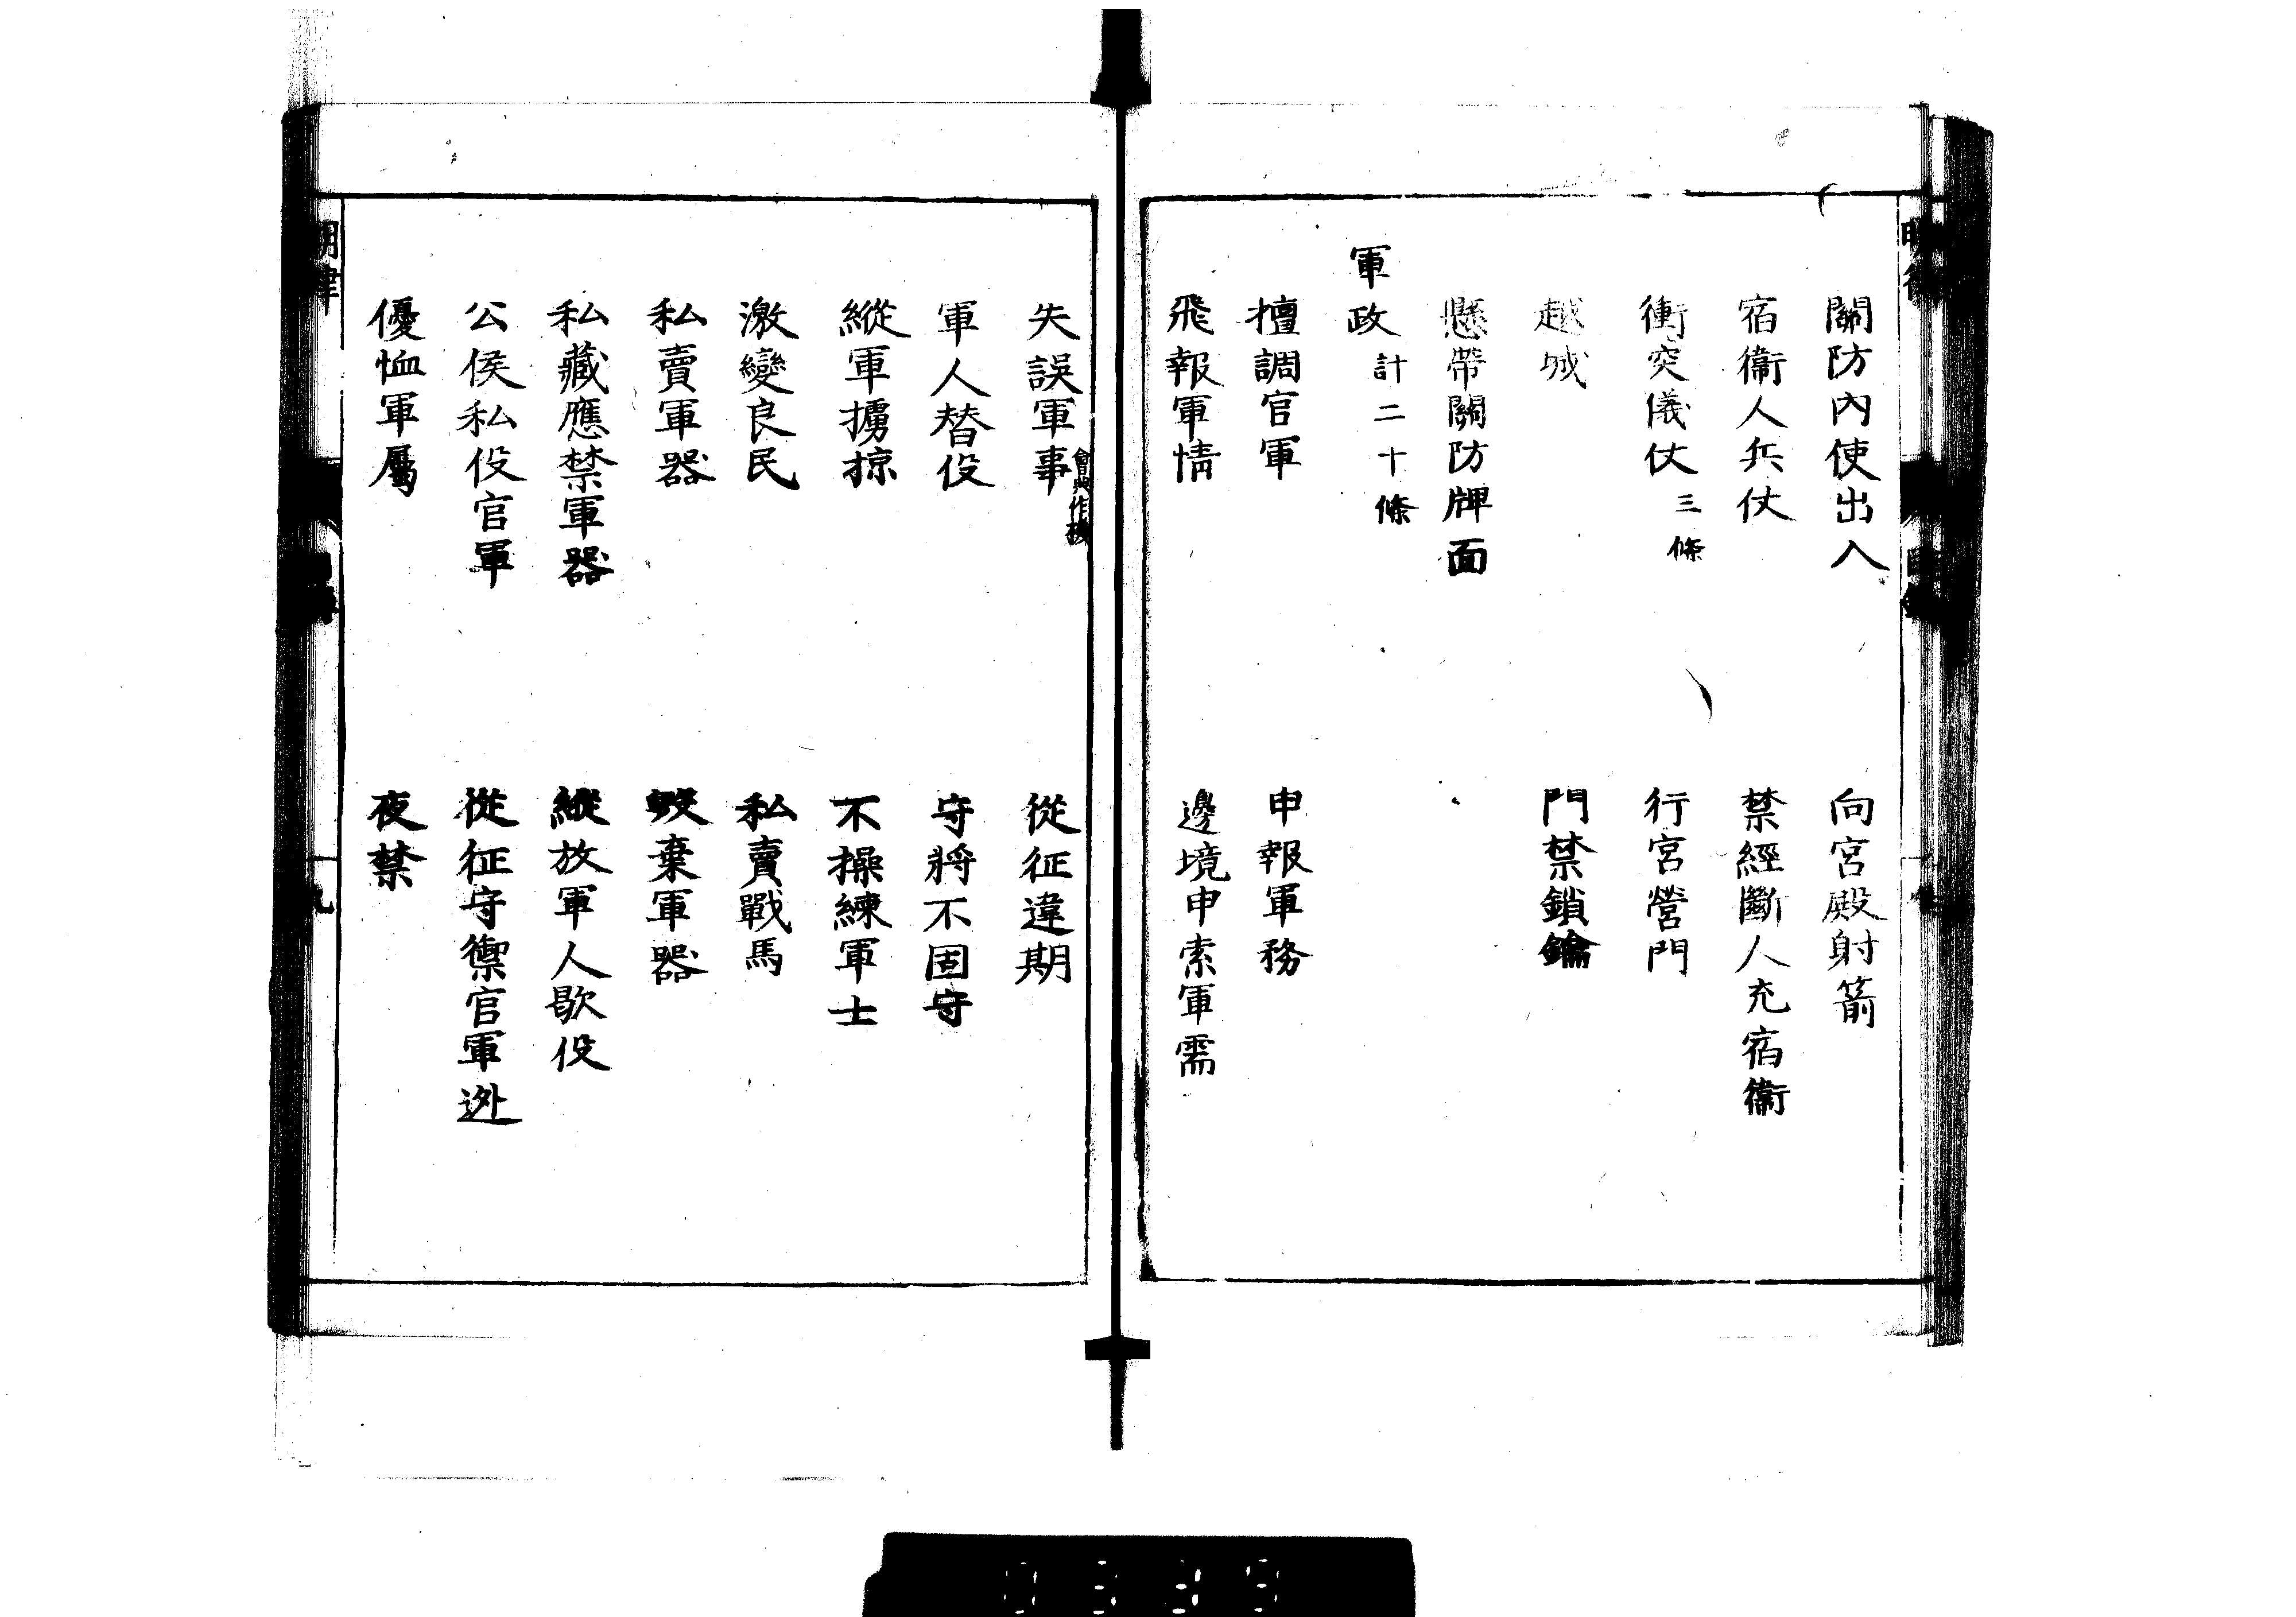 關防內使出入　向宮殿射箭
宿衞人兵仗　禁經斷人充宿衞
衝突儀仗三條　行宮營門
越城　門禁鎖鑰
懸帶關防牌面
軍政計二十條
擅調官軍　申報軍務
飛報軍情　邊境申索軍需
失誤軍事會典作機　從征違期
軍人替役　守將不固守
縱軍擄掠　不操練軍士
激變良民　私賣戰馬
私賣軍器　毀棄軍器
私藏應禁軍器　縱放軍人歇役
公侯私役官軍　從征守禦官軍逃
優恤軍屬　夜禁